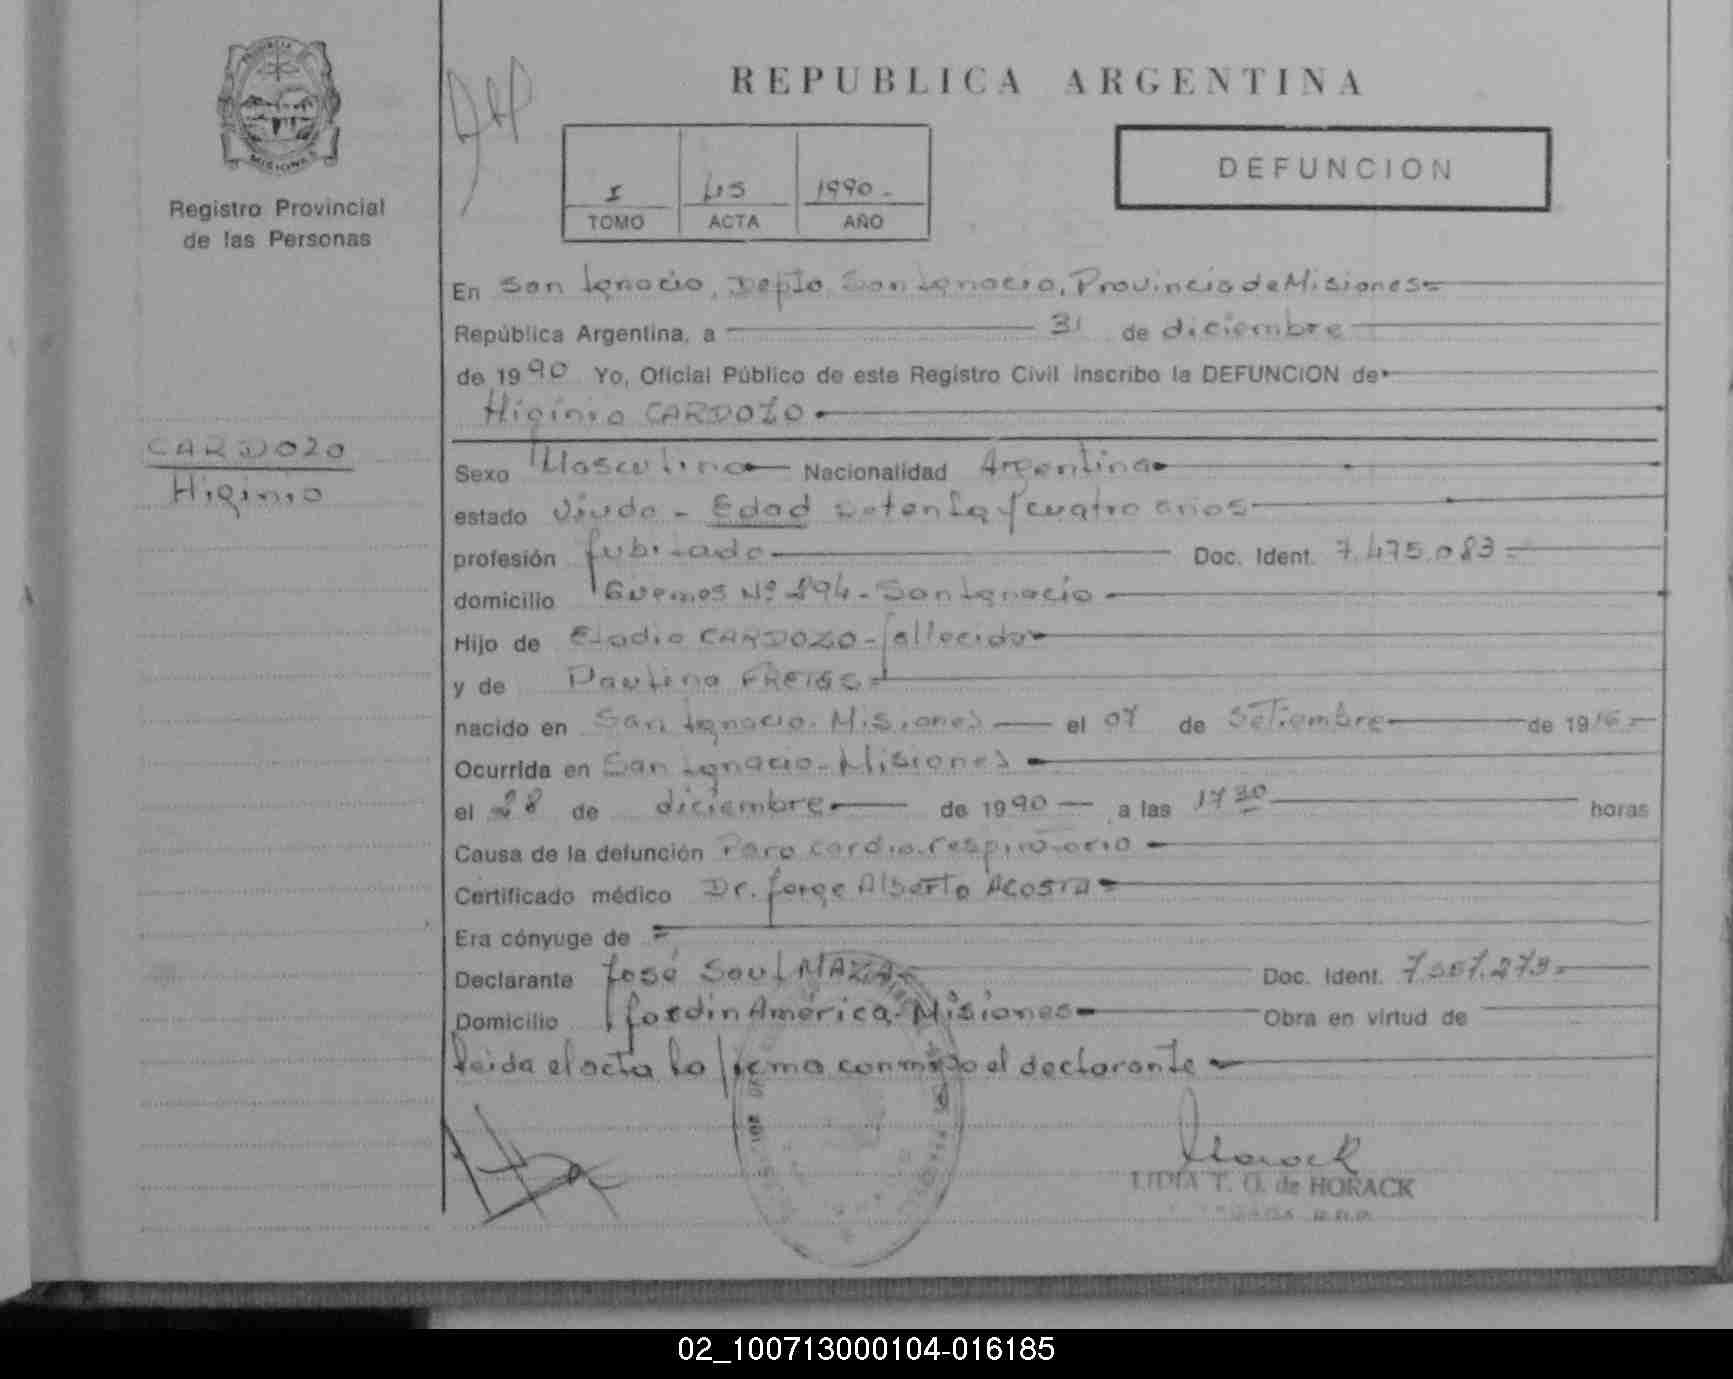 PROVINCIA
MISIONES
Registro Provincial
de las Personas
REPUBLICA ARGENTINA
DEFUNCION
I 45 1990-
TOMO ACTA AÑO
En San Ignacio, Depto San Ignacio, Provincia de Misiones
República Argentina, a 31 de diciembre
de 1990 Yo, Oficial Público de este Registro Civil inscribo la DEFUNCION de
Higinio CARDOZO
CARDOZO
Higinio
Sexo Masculino Nacionalidad Argentina
estado Viudo - Edad setenta y cuatro años
profesión Jubilado Doc. Ident. 7.475.083
domicilio Güemes Nº 894 - San Ignacio
Hijo de Eladio CARDOZO - fallecido
y de Paulina
nacido en San Ignacio. Misiones el 07 de Setiembre de 1916
Ocurrida en San Ignacio - Misiones
el 28 de diciembre de 1990 a las 17 30 horas
Causa de la defunción Paro cardio-respiratorio
Certificado médico Dr. Jorge Alberto ACOSTA
Era cónyuge de
Declarante José Saul Doc. Ident.
Domicilio Jardin América - Misiones Obra en virtud de
leida el acta la firma conmigo el declarante
Horack
LIDIA T. O. de HORACK
02_100713000104-016185